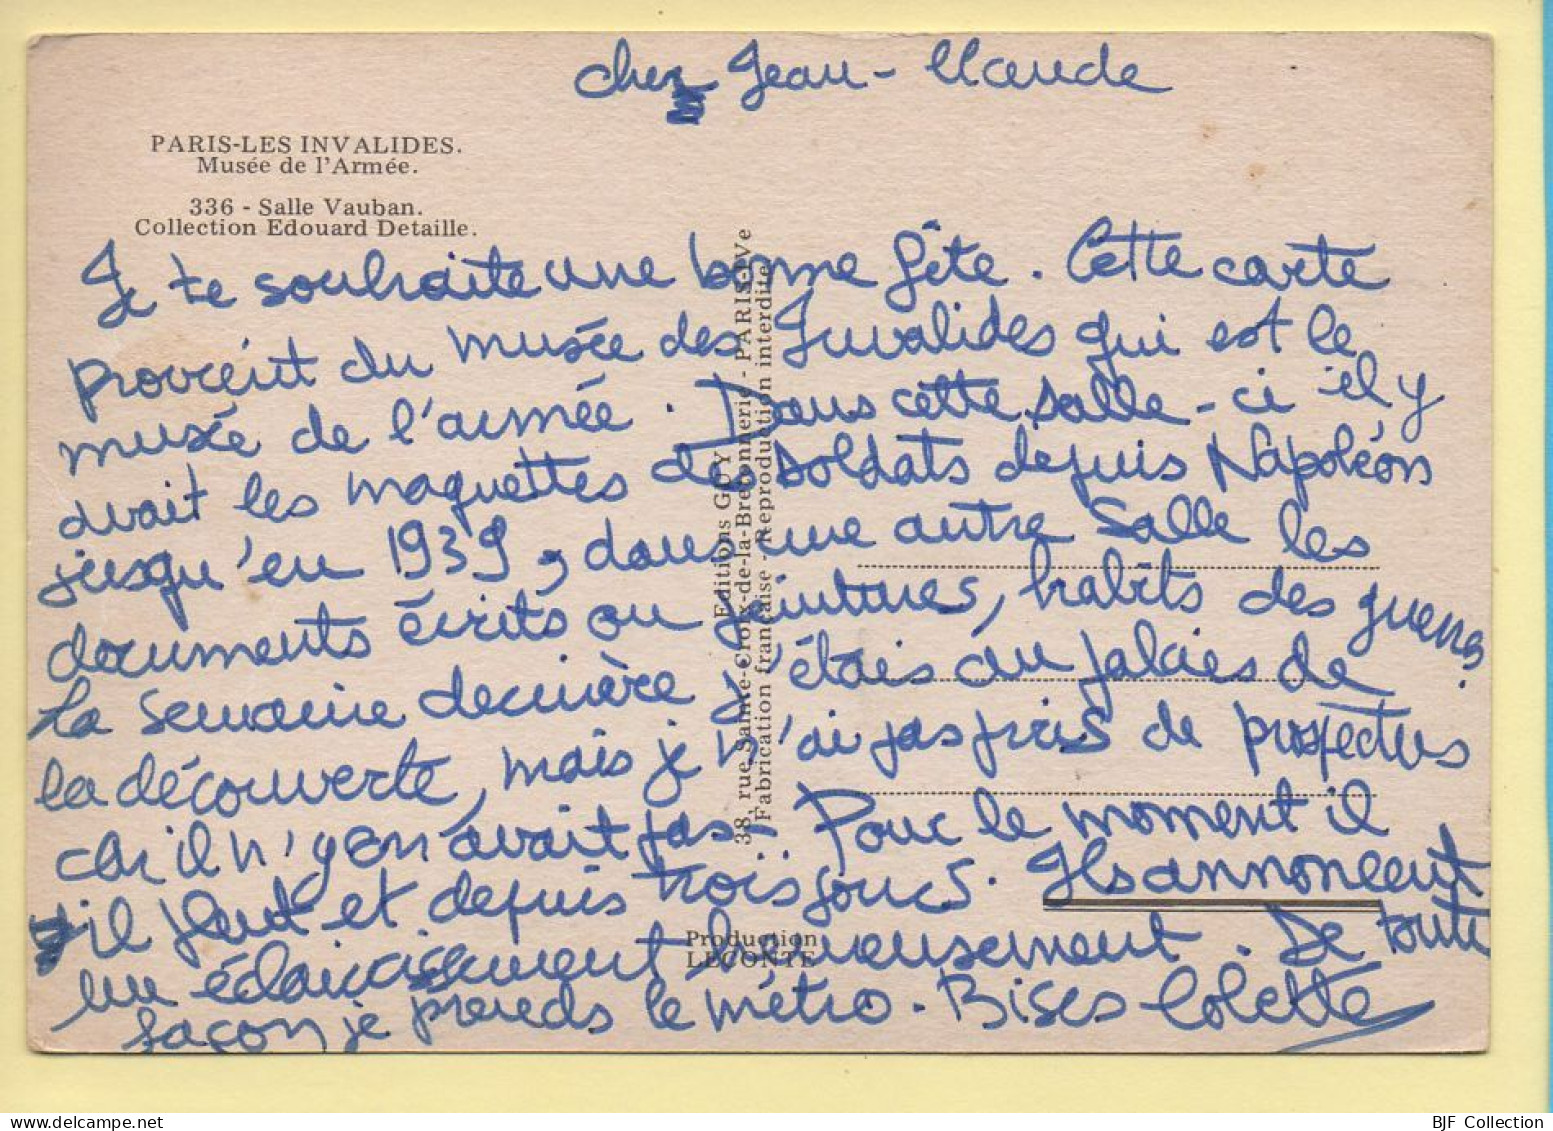 cher Jean-Claude
PARIS-LES INVALIDES.
Musée de l'Armée.
336 - Salle Vauban.
Collection Edouard Detaille.
Je te souhaite une bonne fête. Cette carte
provient du musée des Invalides qui est le
musée de l'armée. Dans cette salle-ci il y
avait les maquettes de soldats depuis Napoléon
jusqu'en 1939, dans une autre salle les
documents écrits ou peintures, habits des guerres.
La semaine dernière j'étais au palais de
la découverte, mais je n'ai pas pris de prospectus
car il n'y en avait pas. Pour le moment il
il pleut et depuis trois jours. Ils annoncent
un éclaircissement heureusement. De toute
façon je prends le métro. Bises Colette
Editions GUY
38, rue Sainte-Croix-de-la-Bretonnerie - PARIS-IVe
Fabrication française - Reproduction interdite
Production
LECONTE
BJF Collection